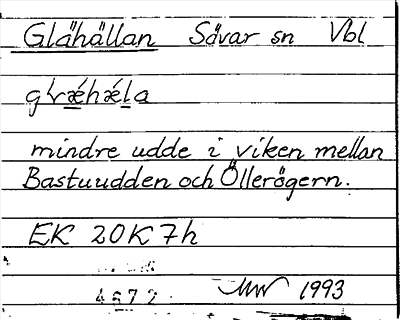 Glähällan Sävar sn Vbl
mindre udde i viken mellan
Bastuudden och Öllerögern.
EK 20K7h
4672
1993